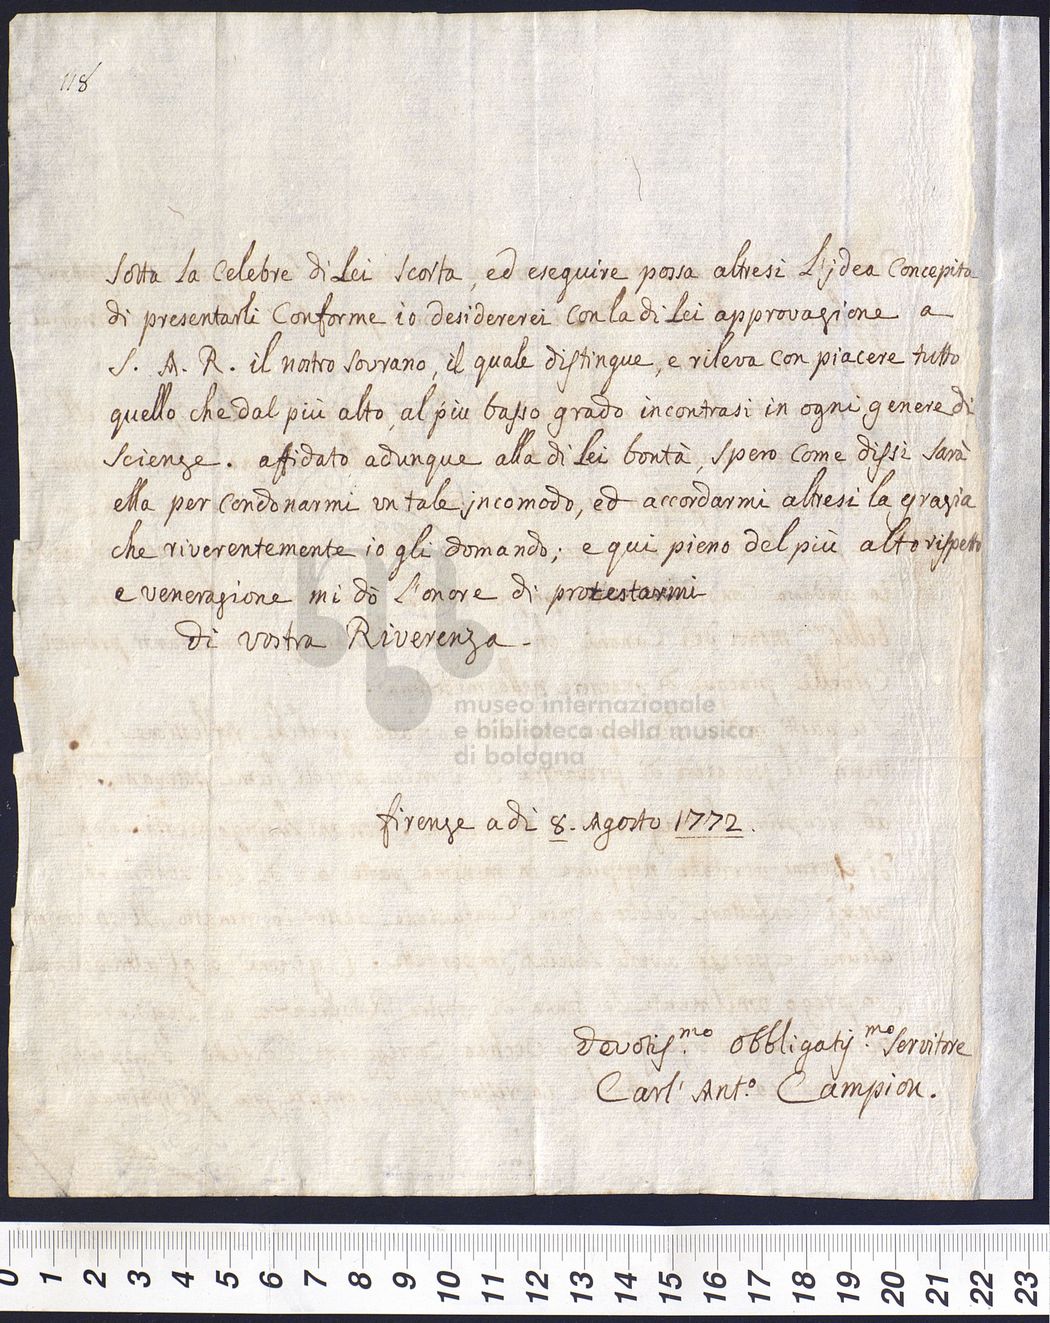 118
sotta la celebre di Lei scorta, ed eseguire possa altresi L'jdea Concepita
di presentarli Conforme io desidererei con la di Lei approvazione a
S. A. R. il nostro sovrano, il quale distingue, e rileva con piacere tutto
quello che dal più alto, al più basso grado incontrasi in ogni genere di
scienze. affidato adunque alla di Lei bontà, spero come dissi sarà
ella per condonarmi un tale jncomodo, ed accordarmi altresi la grazia
che riverentemente io gli domando; e qui pieno del più alto rispetto
e venerazione mi dò L'onore di protestarmi
di vostra Riverenza.
museo internazionale
e biblioteca della musica
di bologna
firenze a di 8. Agosto 1772.
Devotis.mo Obbligatis.mo Servitore
Carl' Ant.o Campion.
0 1 2 3 4 5 6 7 8 9 10 11 12 13 14 15 16 17 18 19 20 21 22 23